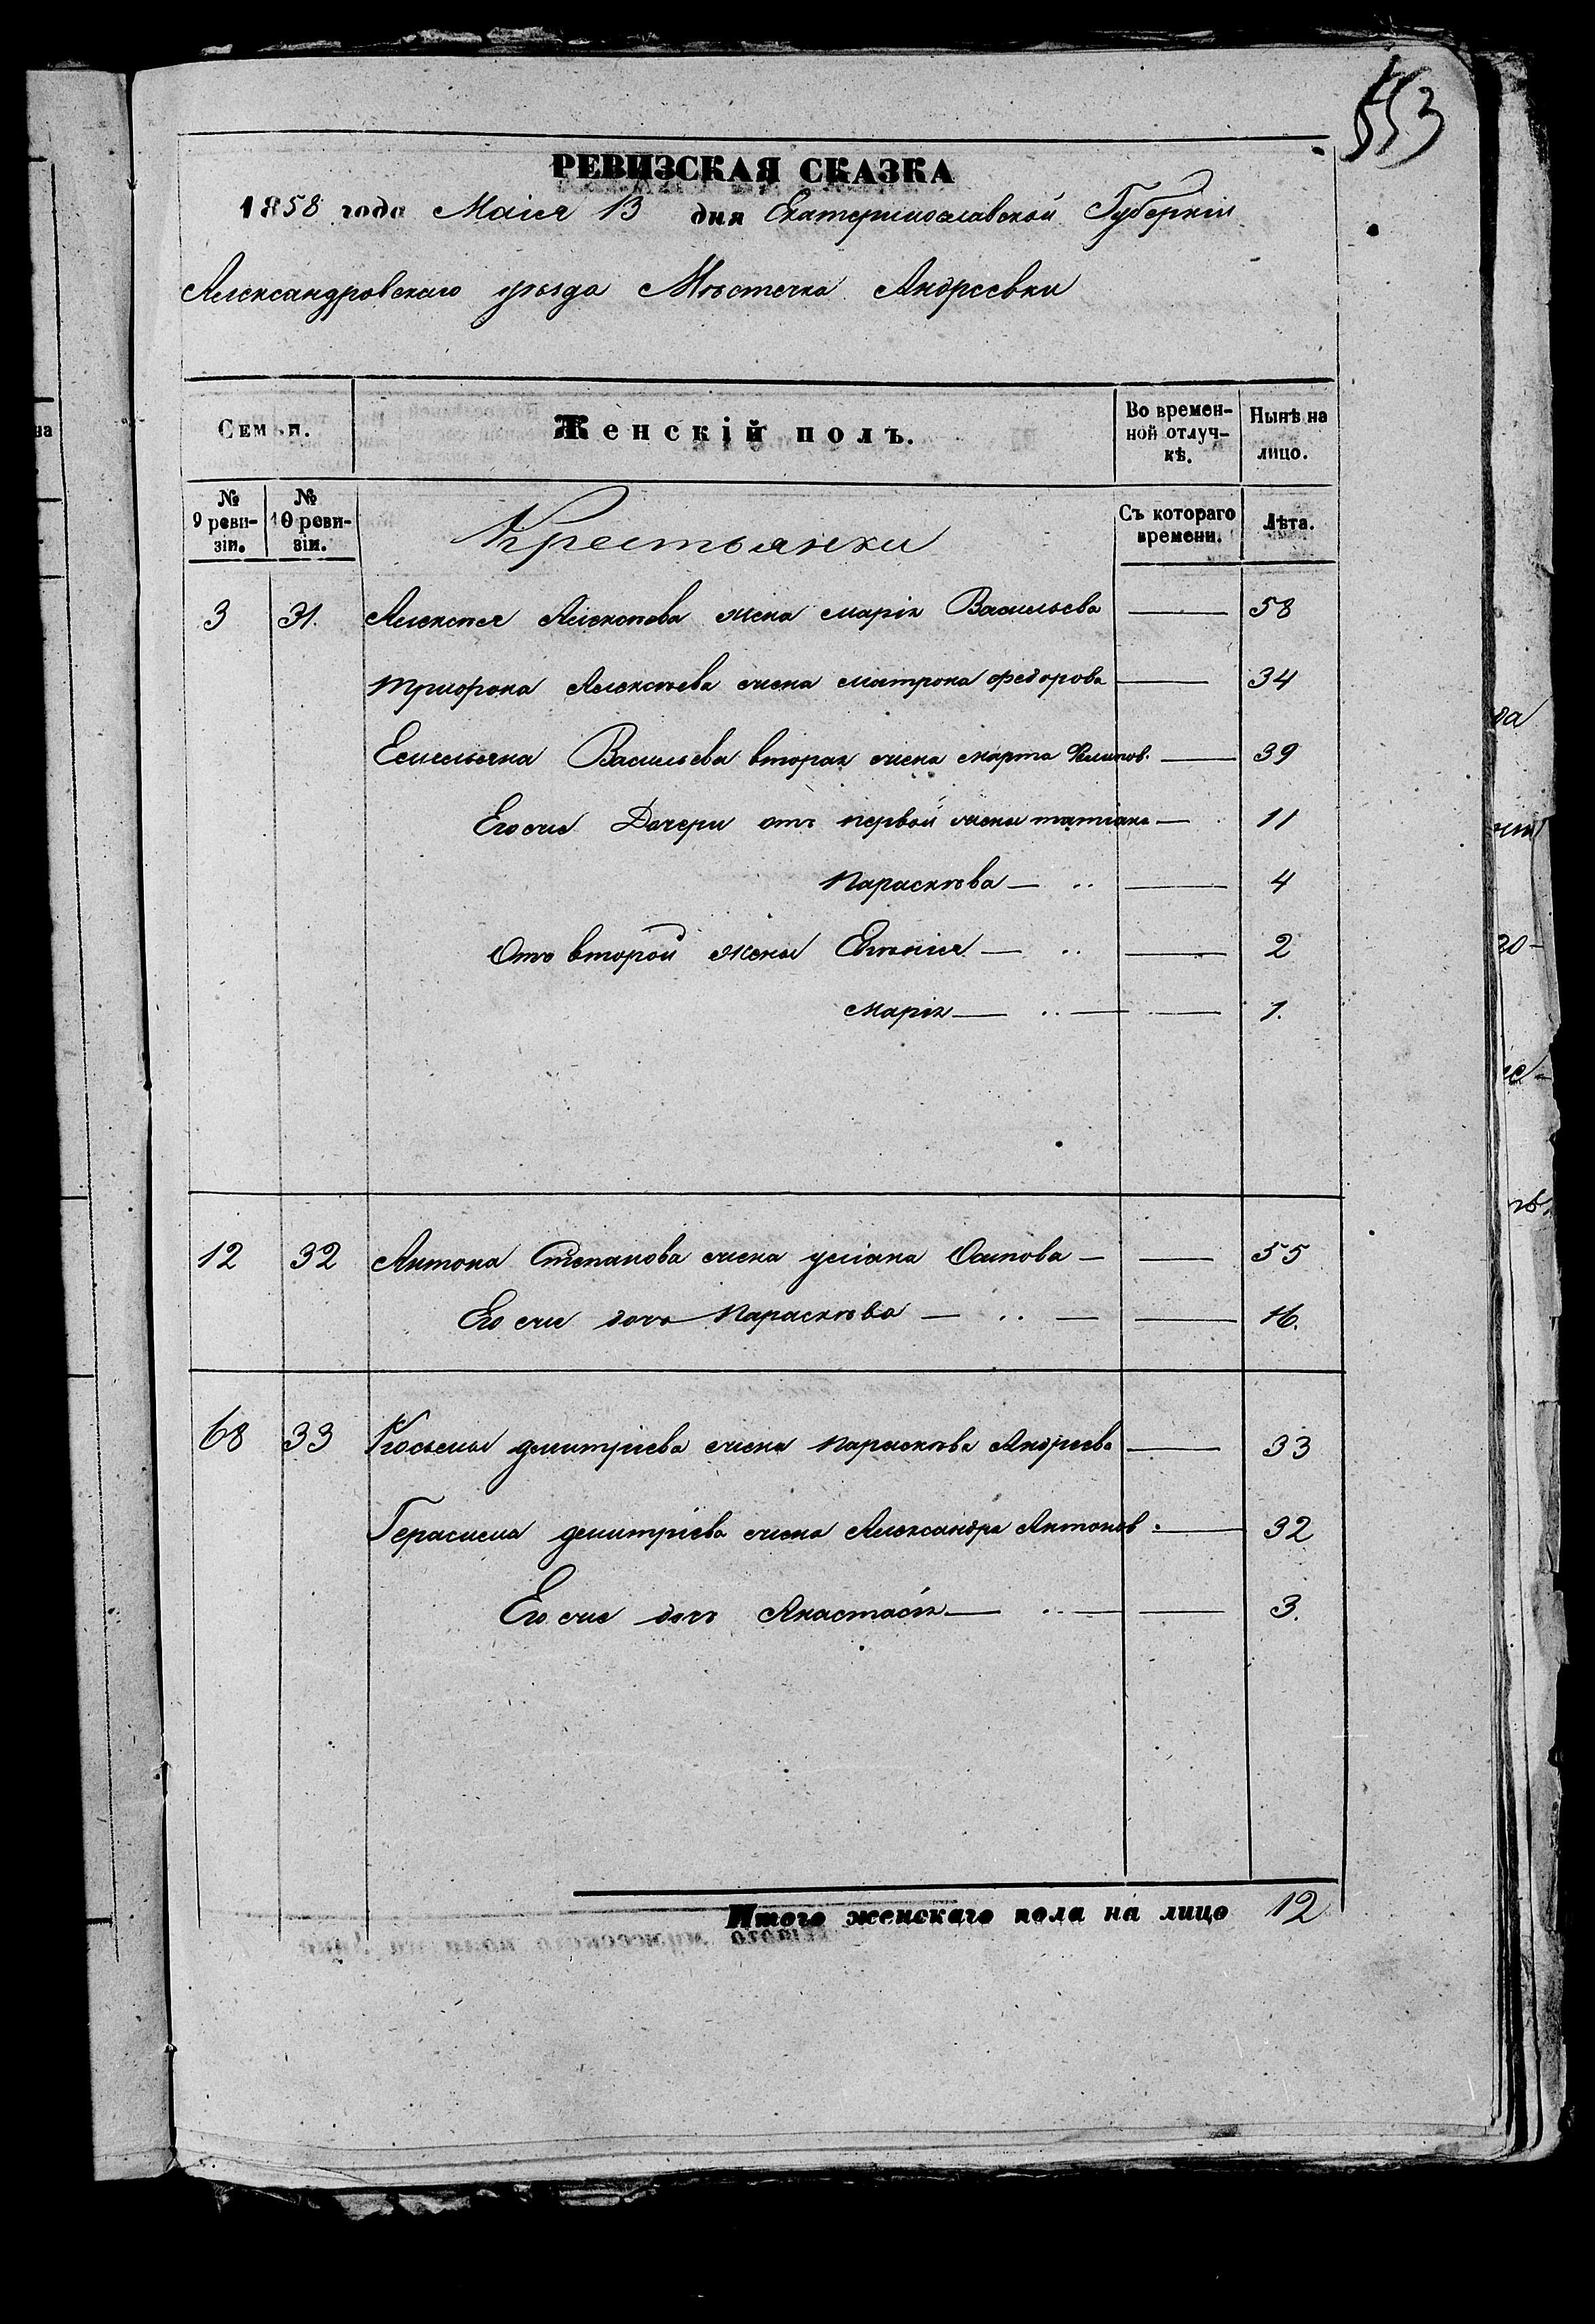 553
РЕВИЗСКАЯ СКАЗКА
1858 года Маія 13 дня Екатеринославской Губерніи
Александровскаго уѣзда Мѣстечка Андреевки
Семьи. Женскій полъ. Во времен-ной отлуч-кѣ. Нынѣ на лицо.
№ 9 реви-зіи. № 10 реви-зіи. Крестьянки Съ котораго времени. Лѣта.
3 31. Алексѣя Алексѣева жена марія Васильева — 58
трифона Алексѣева жена матрона федорова — 34
Емельяна Васильева вторая жена марта Филипов. — 39
Его же Дочери отъ первой жены татіана — 11
Параскѣва — .. — 4
Отъ второй жены Евгенія — .. — 2
марія — .. — — 1.
12 32 Антона Степанова жена уліана Осипова — — 55
Его же дочь Параскѣва — .. — — 16.
68 33 Косьмы дмитріева жена параскѣва Андреева — 33
Герасима дмитріева жена Александра Антонов. — 32
Его же дочь Анастасія — .. — — 3.
Итого женскаго пола на лицо 12